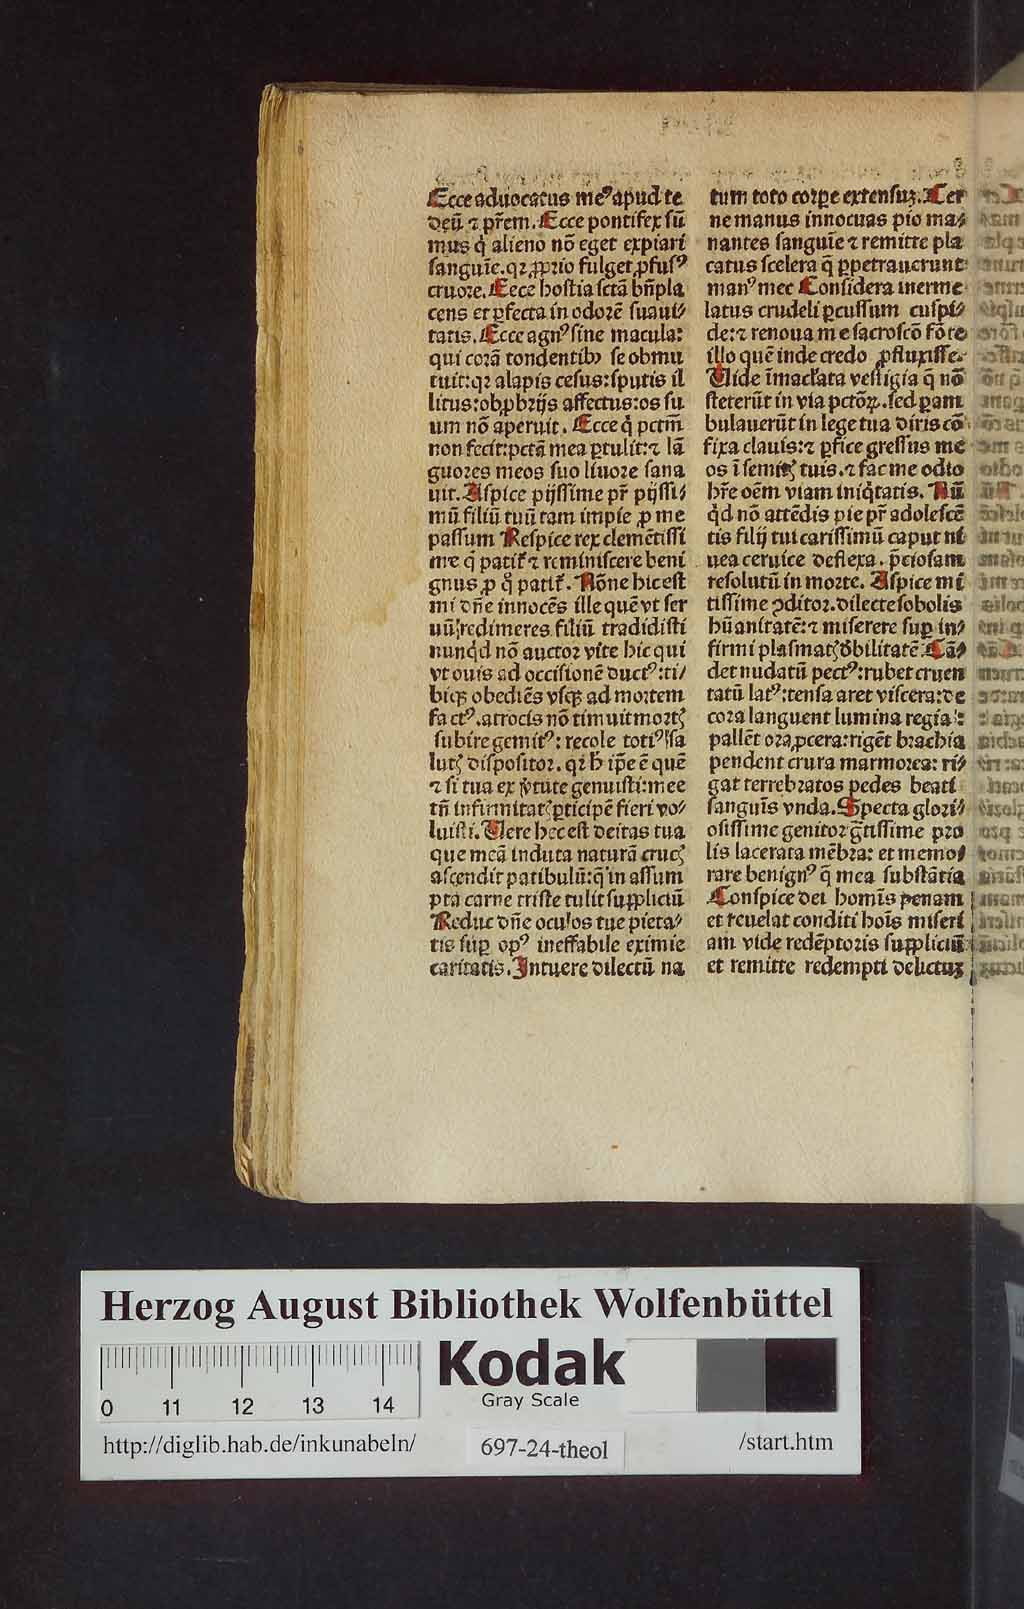 Ecce aduocatus meꝰ apud te
deū ⁊ pr̄em. Ecce pontifex sū
mus q̇ alieno nō eget expiari
sanguīe. qꝛ ꝓprio fulget ꝓfusꝰ
cruore. Ecce hostia sctā bn̄pla
cens et ꝑfecta in odorē suaui⸗
tatis. Ecce agnꝰ sine macula:
qui corā tondentibꝫ se obmu
tuit: qꝛ alapis cesus: sputis il
litus: obꝓbrijs affectus: os su
um nō aperuit. Ecce q̇ pctm̄
non fecit: pctā mea ꝑtulit: ⁊ lā
guores meos suo liuore sana
uit. Aspice pijssime pr̄ pijssi⸗
mū filiū tuū tam impie ꝓ me
passum Respice rex clemētissi
me q̇ patit̄ ⁊ reminiscere beni
gnus ꝓ q̊ patit̄. Nōne hic est
mi dn̄e innocēs ille quē vt ser
uū redimeres filiū tradidisti
nunqͥd nō auctor vite hic qui
vt ouis ad occisionē ductꝰ: ti⸗
biqꝫ obediēs vsqꝫ ad mortem
factꝰ. atrocis nō timuit mortꝭ
subire gemitꝰ: recole totiꝰ sa
lutꝭ dispositor. qꝛ h̄ ip̄e ē quē
⁊ si tua ex v̇tute genuisti: mee
tn̄ infirmitatꝭ ꝑticipē fieri vo⸗
luisti. Uere hec est deitas tua
que meā induta naturā crucꝭ
ascendit patibulū: q̄ in assum
pta carne triste tulit suppliciū
Reduc dn̄e oculos tue pieta⸗
tis suꝑ opꝰ ineffabile eximie
caritatis. Intuere dilectū na
tum toto corꝑe extensuꝫ. Cer
ne manus innocuas pio ma⸗
nantes sanguīe ⁊ remitte pla
catus scelera q̄ ꝑpetrauerunt
manꝰ mee Considera inerme
latus crudeli ꝑcussum cuspi⸗
de: ⁊ renoua me sacroscō fōte
illo quē inde credo ꝓfluxisse.
Uide īmaclata vestigia q̄ nō
steterūt in via pctōꝝ. sed ꝑam
bulauerūt in lege tua diris cō
fixa clauis: ⁊ ꝑfice gressus me
os ī semitꝭ tuis. ⁊ fac me odio
hr̄e oēm viam iniqͥtatis. Nū
qͥd nō attēdis pie pr̄ adolescē
tis filij tui carissimū caput ni
uea ceruice deflexa. p̄ciosam
resolutū in morte. Aspice mi
tissime ꝯditor. dilecte sobolis
hūanitatē: ⁊ miserere suꝑ in⸗
firmi plasmatꝭ dbilitatē. Cā⸗
det nudatū pectꝰ: rubet cruen
tatū latꝰ: tensa aret viscera: de
cora languent lumina regia:
pallēt ora. ꝓcera: rigēt brachia
pendent crura marmorea: ri⸗
gat terrebratos pedes beati
sanguīs vnda. Specta glori⸗
osissime genitor gr̄tissime pro
lis lacerata mēbra: et memo⸗
rare benignꝰ q̄ mea substātia
Conspice dei homīs penam
et reuelat conditi hoīs miseri
am vide redēptoris suppliciū
et remitte redempti delictuꝫ
Herzog August Bibliothek Wolfenbüttel
Kodak
Gray Scale
0 11 12 13 14
http://diglib.hab.de/inkunabeln/
697-24-theol
/start.htm